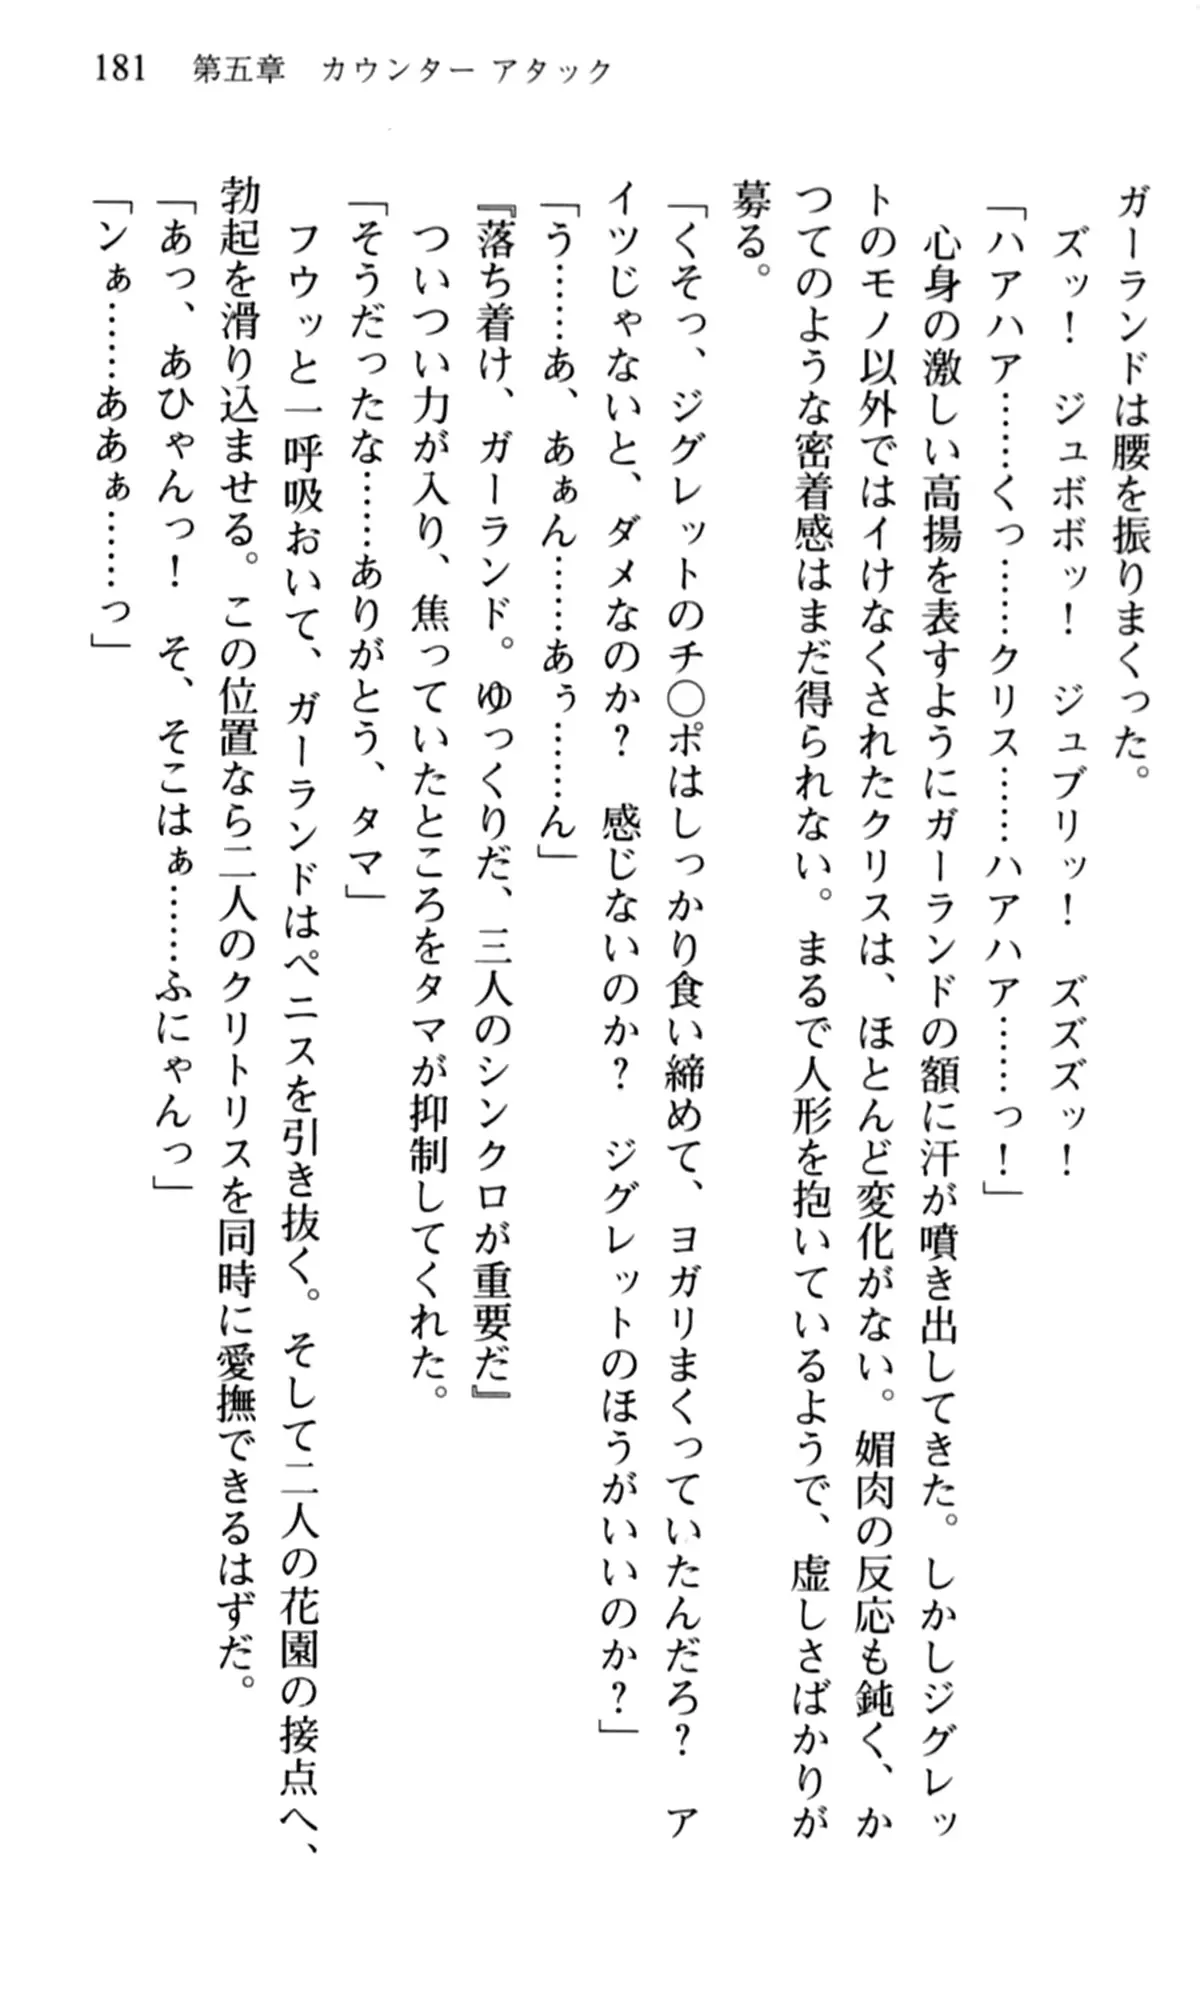 181　第五章　カウンター アタック
ガーランドは腰を振りまくった。
　ズッ！　ジュボボッ！　ジュブリッ！　ズズズッ！
「ハアハア………くっ………クリス………ハアハア………っ！」
　心身の激しい高揚を表すようにガーランドの額に汗が噴き出してきた。しかしジグレッ
トのモノ以外ではイけなくされたクリスは、ほとんど変化がない。媚肉の反応も鈍く、か
つてのような密着感はまだ得られない。まるで人形を抱いているようで、虚しさばかりが
募る。
「くそっ、ジグレットのチ◯ポはしっかり食い締めて、ヨガリまくっていたんだろ？　ア
イツじゃないと、ダメなのか？　感じないのか？　ジグレットのほうがいいのか？」
「う………あ、あぁん………あぅ………ん」
『落ち着け、ガーランド。ゆっくりだ、三人のシンクロが重要だ』
　ついつい力が入り、焦っていたところをタマが抑制してくれた。
「そうだったな………ありがとう、タマ」
　フウッと一呼吸おいて、ガーランドはペニスを引き抜く。そして二人の花園の接点へ、
勃起を滑り込ませる。この位置なら二人のクリトリスを同時に愛撫できるはずだ。
「あっ、あひゃんっ！　そ、そこはぁ………ふにゃんっ」
「ンぁ………ああぁ………っ」